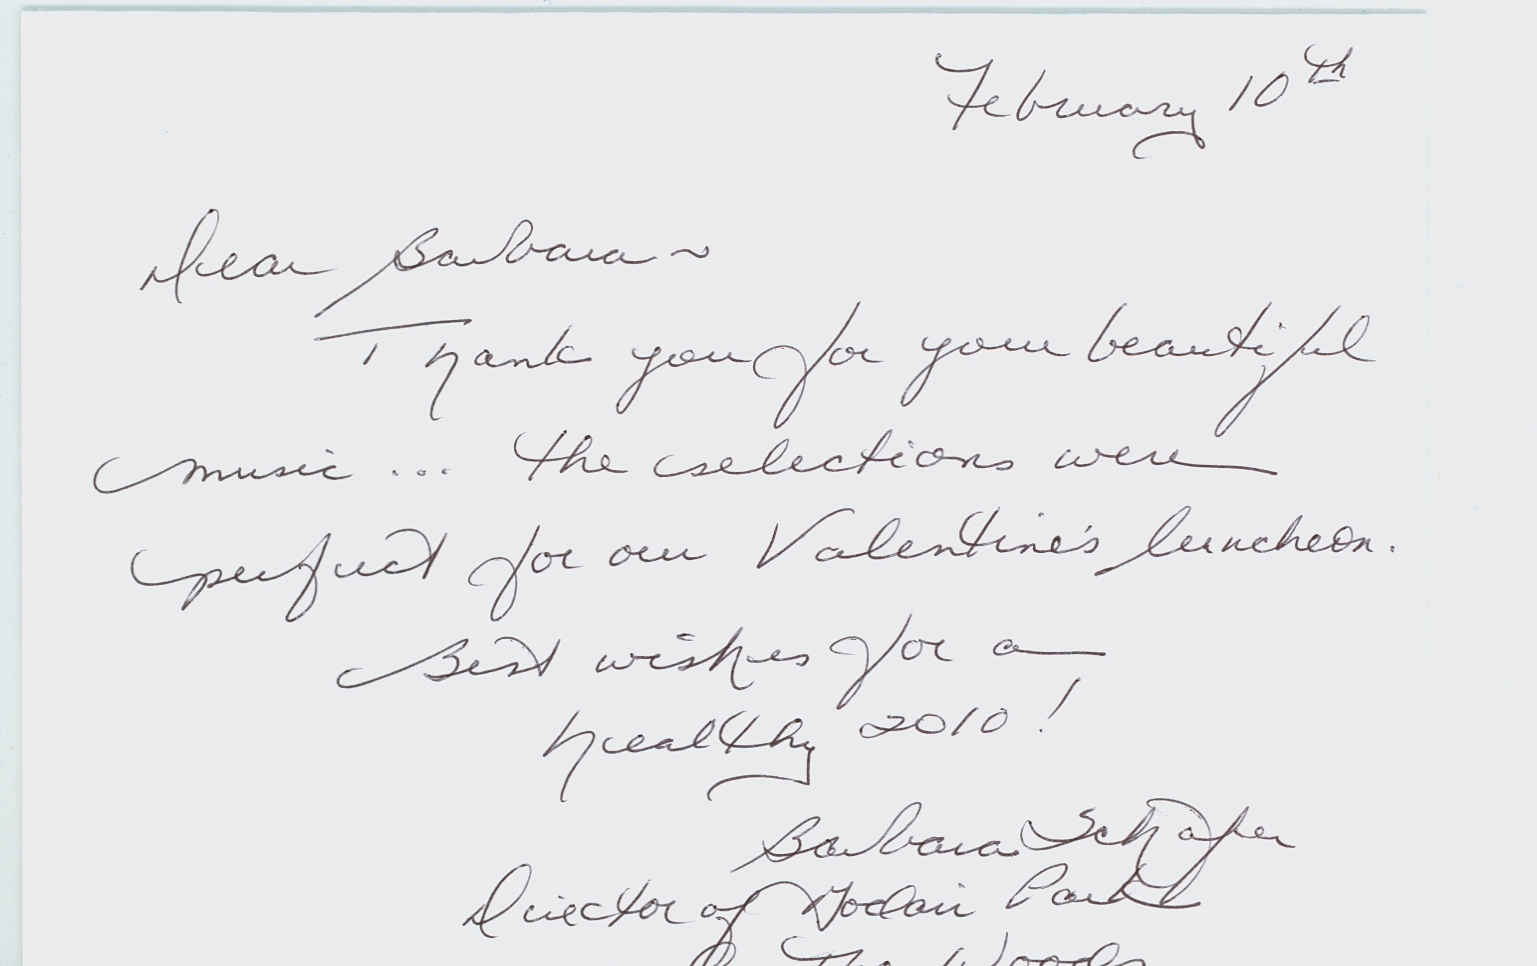 February 10th
Dear Barbara ~
Thank you for your beautiful
music ... the selections were
perfect for our Valentine's luncheon.
Best wishes for a
healthy 2010!
Barbara Schafer
Director of Godair Park
The Woods